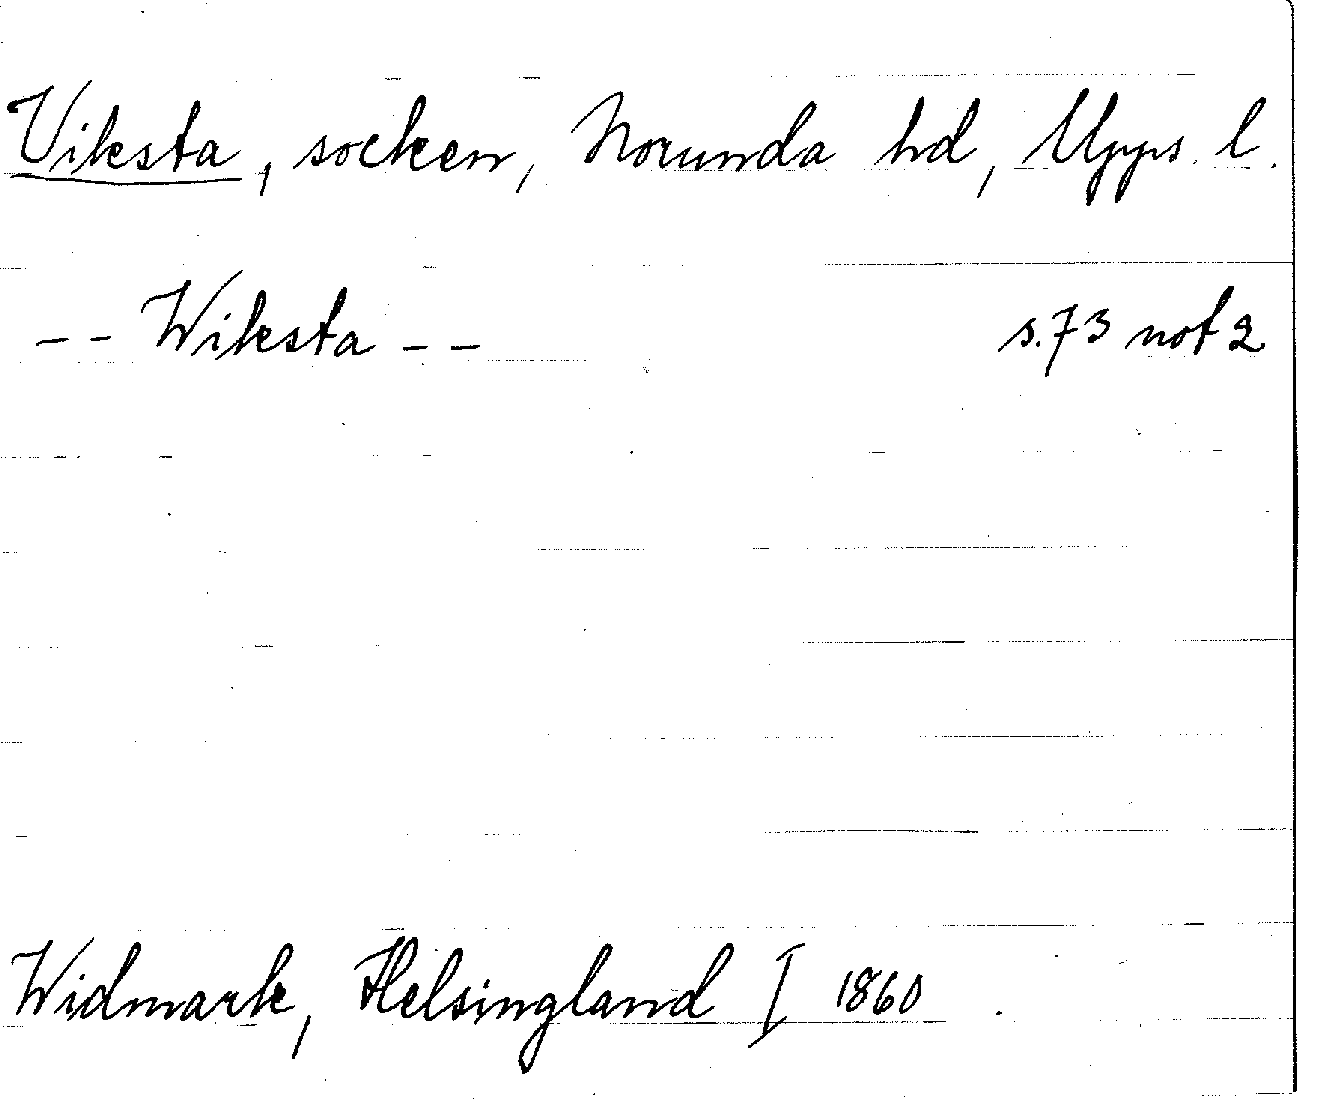 Viksta, socken, Norunda hd, Upps. l.
-- Wiksta -- s. 73 not 2
Widmark, Helsingland I 1860.